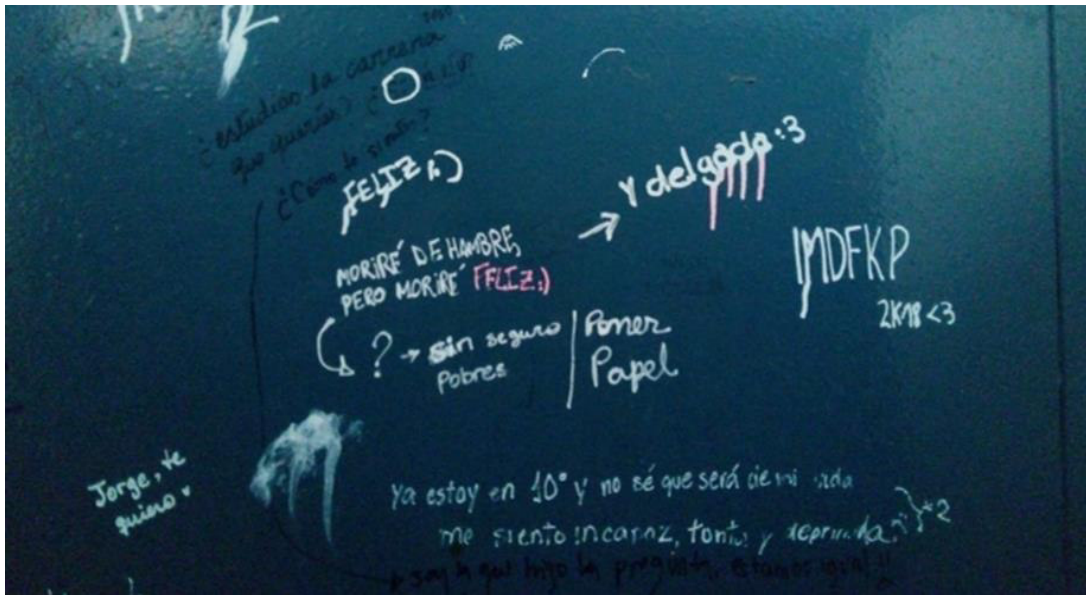 ¿estudias la carrera
que querías?
¿Cómo te sientes?
FELIZ :)
Y delgada :3
MORIRÉ DE HAMBRE,
PERO MORIRÉ FELIZ :)
? → sin seguro
Pobres
Poner
Papel
IMDFKP
2K18 <3
Jorge, te
quiero ♥
Ya estoy en 10° y no sé que será de mi vida
me siento incapaz, tonta y deprimida
soy la que hizo la pregunta, estamos igual